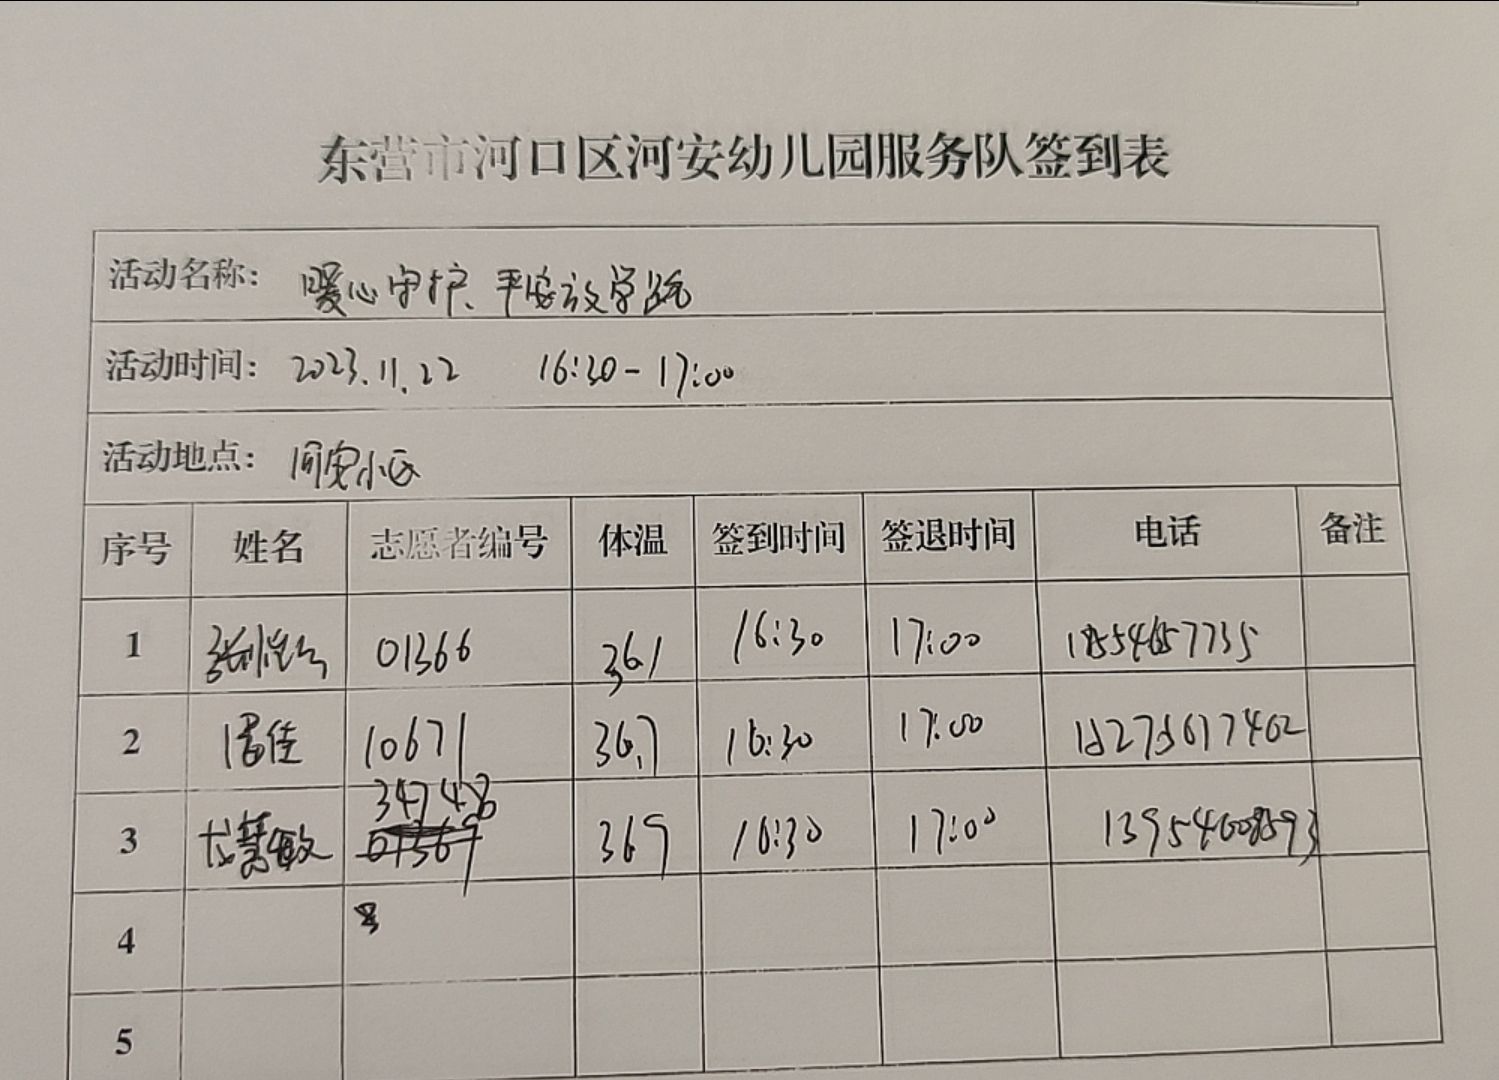 东营市河口区河安幼儿园服务队签到表
活动名称： 暖心守护、平安放学路
活动时间： 2023.11.22 16:30-17:00
活动地点： 河安小区
序号 姓名 志愿者编号 体温 签到时间 签退时间 电话 备注
1 01366 36.1 16:30 17:00
2 10671 36.7 16:30 17:00
34748
3 369 16:30 17:00 13954608593
4
5